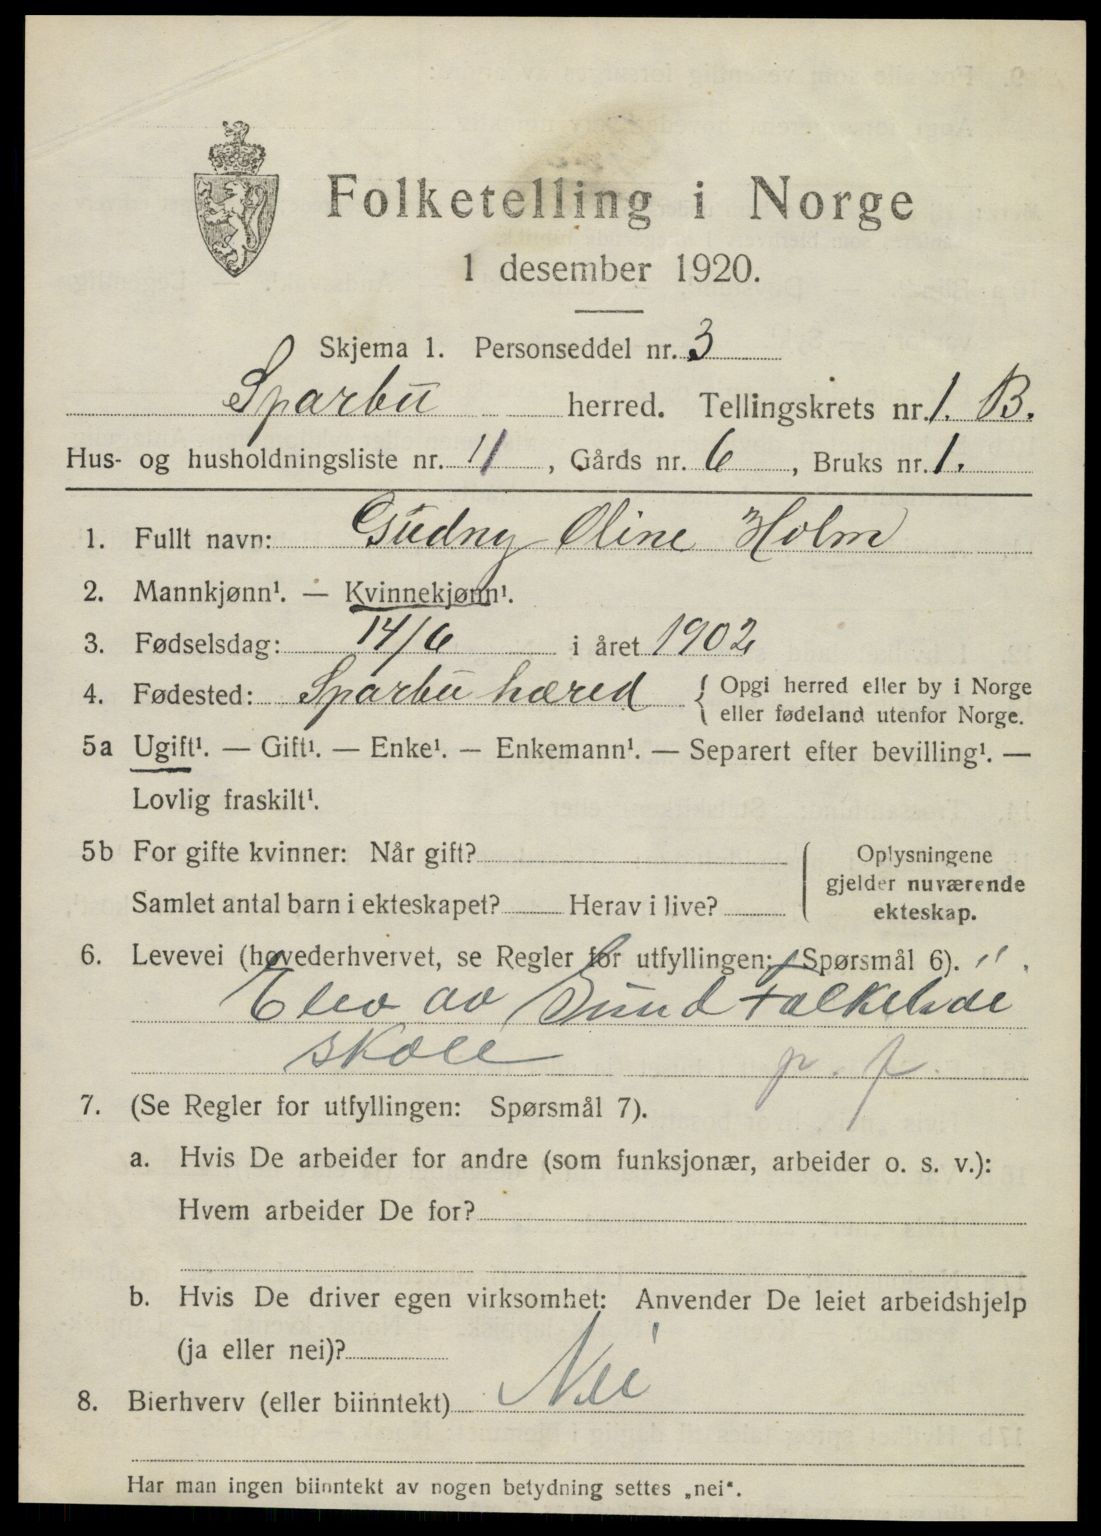 Folketelling i Norge
1 desember 1920.
Skjema 1. Personseddel nr. 3
Sparbu herred. Tellingskrets nr. 1. B.
Hus- og husholdningsliste nr. 11, Gårds nr. 6, Bruks nr. 1.
1. Fullt navn: Gudny Oline Holm
2. Mannkjønn¹. — Kvinnekjønn¹.
3. Fødselsdag: 14/6 i året 1902
4. Fødested: Sparbu hæred { Opgi herred eller by i Norge
eller fødeland utenfor Norge.
5a Ugift¹. — Gift¹. — Enke¹. — Enkemann¹. — Separert efter bevilling¹. —
Lovlig fraskilt¹.
5b For gifte kvinner: Når gift?
Samlet antal barn i ekteskapet? Herav i live?
Oplysningene
gjelder nuværende
ekteskap.
6. Levevei (hovederhvervet, se Regler for utfyllingen: Spørsmål 6).
Elev av Sund
skole p. f.
7. (Se Regler for utfyllingen: Spørsmål 7).
a. Hvis De arbeider for andre (som funksjonær, arbeider o. s. v.):
Hvem arbeider De for?
b. Hvis De driver egen virksomhet: Anvender De leiet arbeidshjelp
(ja eller nei)?
8. Bierhverv (eller biinntekt) Nei
Har man ingen biinntekt av nogen betydning settes „nei".